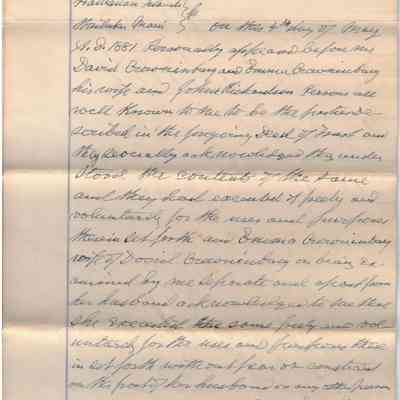 Hawaiian Islands
Wailuku Maui } SS On this 4th day of May
A.D. 1881 Personally appeared before me
David Crowningburg and Emma Crowningburg
his wife and John Richardson Persons all
well Known to me to be the parties de-
scribed in the foregoing Deed of Trust and
they severally acknowledged they under
stood the contents of the same
and they had executed it freely and
voluntarily for the uses and purposes
therein set forth and Emma Crowningburg
wife of David Crowningburg on being ex-
amined by me separate and apart from
her husband acknowledged to me that
she executed the same freely and vol-
untarily for the uses and purposes there
in set forth without fear or constraint
on the part of her husband or any other person